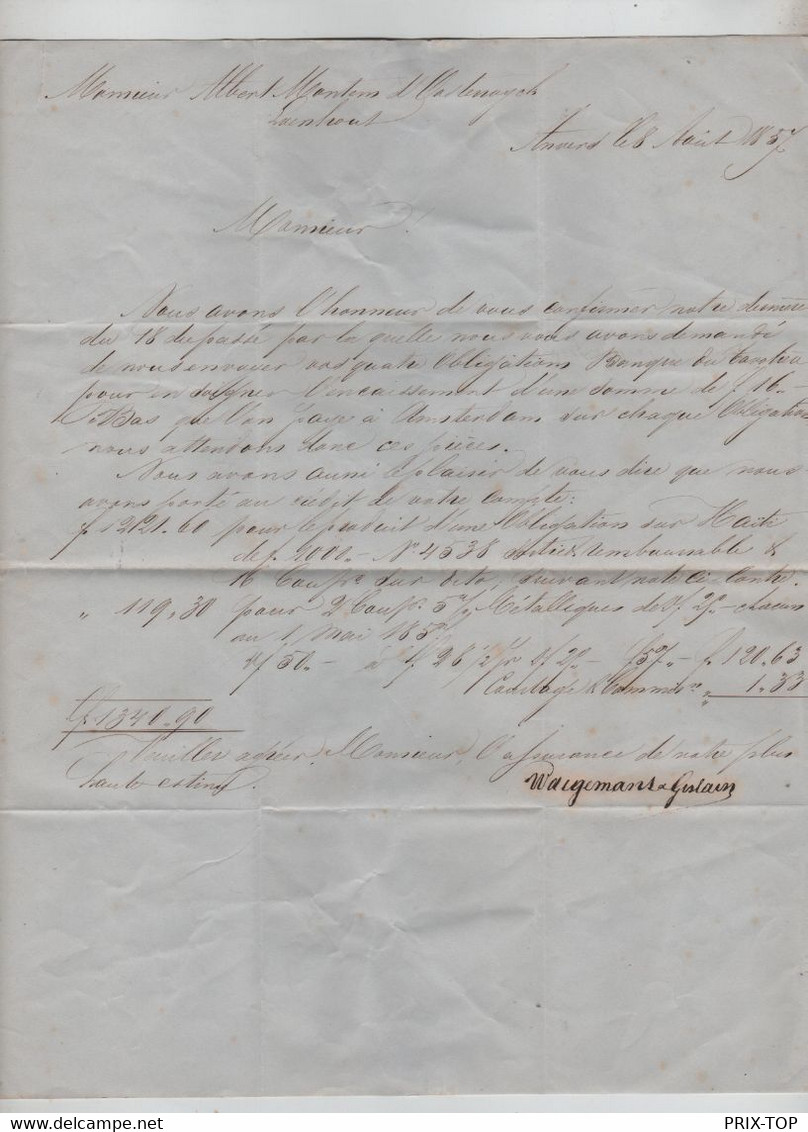 Monsieur Albert
Loenhout
Anvers le 8 Août 1857
Monsieur
Nous avons l'honneur de vous confirmer notre dernière
du 18 du passé par la quelle nous vous avons demandé
de nous envoyer vos quatre Obligations Banque du
pour en soigner l'encaissement d'une somme de f 16.-
P. Bas que l'on paye à Amsterdam sur chaque Obligation
nous attendons donc ces pièces.
Nous avons aussi le plaisir de vous dire que nous
avons porté au crédit de votre compte:
f 2121.60 pour le produit d'une Obligation sur
de f. 2000.- No 4538 remboursable &
16 Coup.s sur dito, suivant note ci-contre.
" 119,30 pour 2 Coup. 5 % Métalliques de chacun
au 1 Mai 185
f 50.- à f. 28 1/2 57.- f. 120.63
Courtage & Commis.on " 1.33
f. 1340.90
Veuillez agréer, Monsieur, l'assurance de notre plus
haute estime.
Waegemans & Gislain
PRIX-TOP